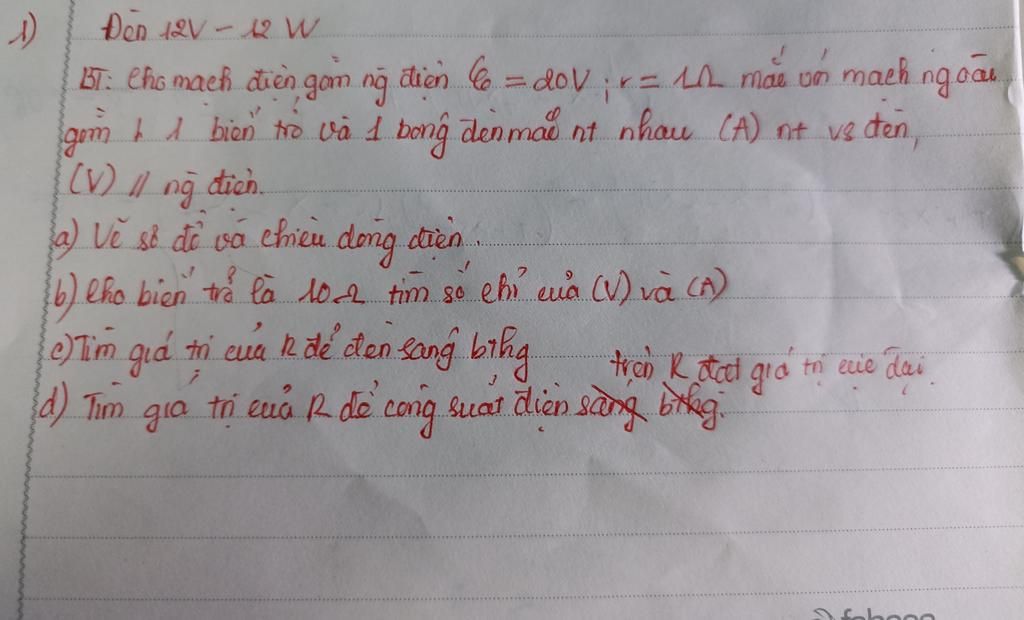 1) Đèn 12V - 12 W
BT: Cho mạch điện gồm ng điện ℰ = 20V ; r = 1Ω mắc với mạch ngoài
gồm 1 biến trở và 1 bóng đèn mắc nt nhau (A) nt vs đèn,
(V) // ng điện.
a) Vẽ sơ đồ và chiều dòng điện.
b) Cho biến trở là 10Ω tìm số chỉ của (V) và (A)
c) Tìm giá trị của R để đèn sáng bthg
trên R đạt giá trị cực đại
d) Tìm giá trị của R để công suất điện sáng bthg.